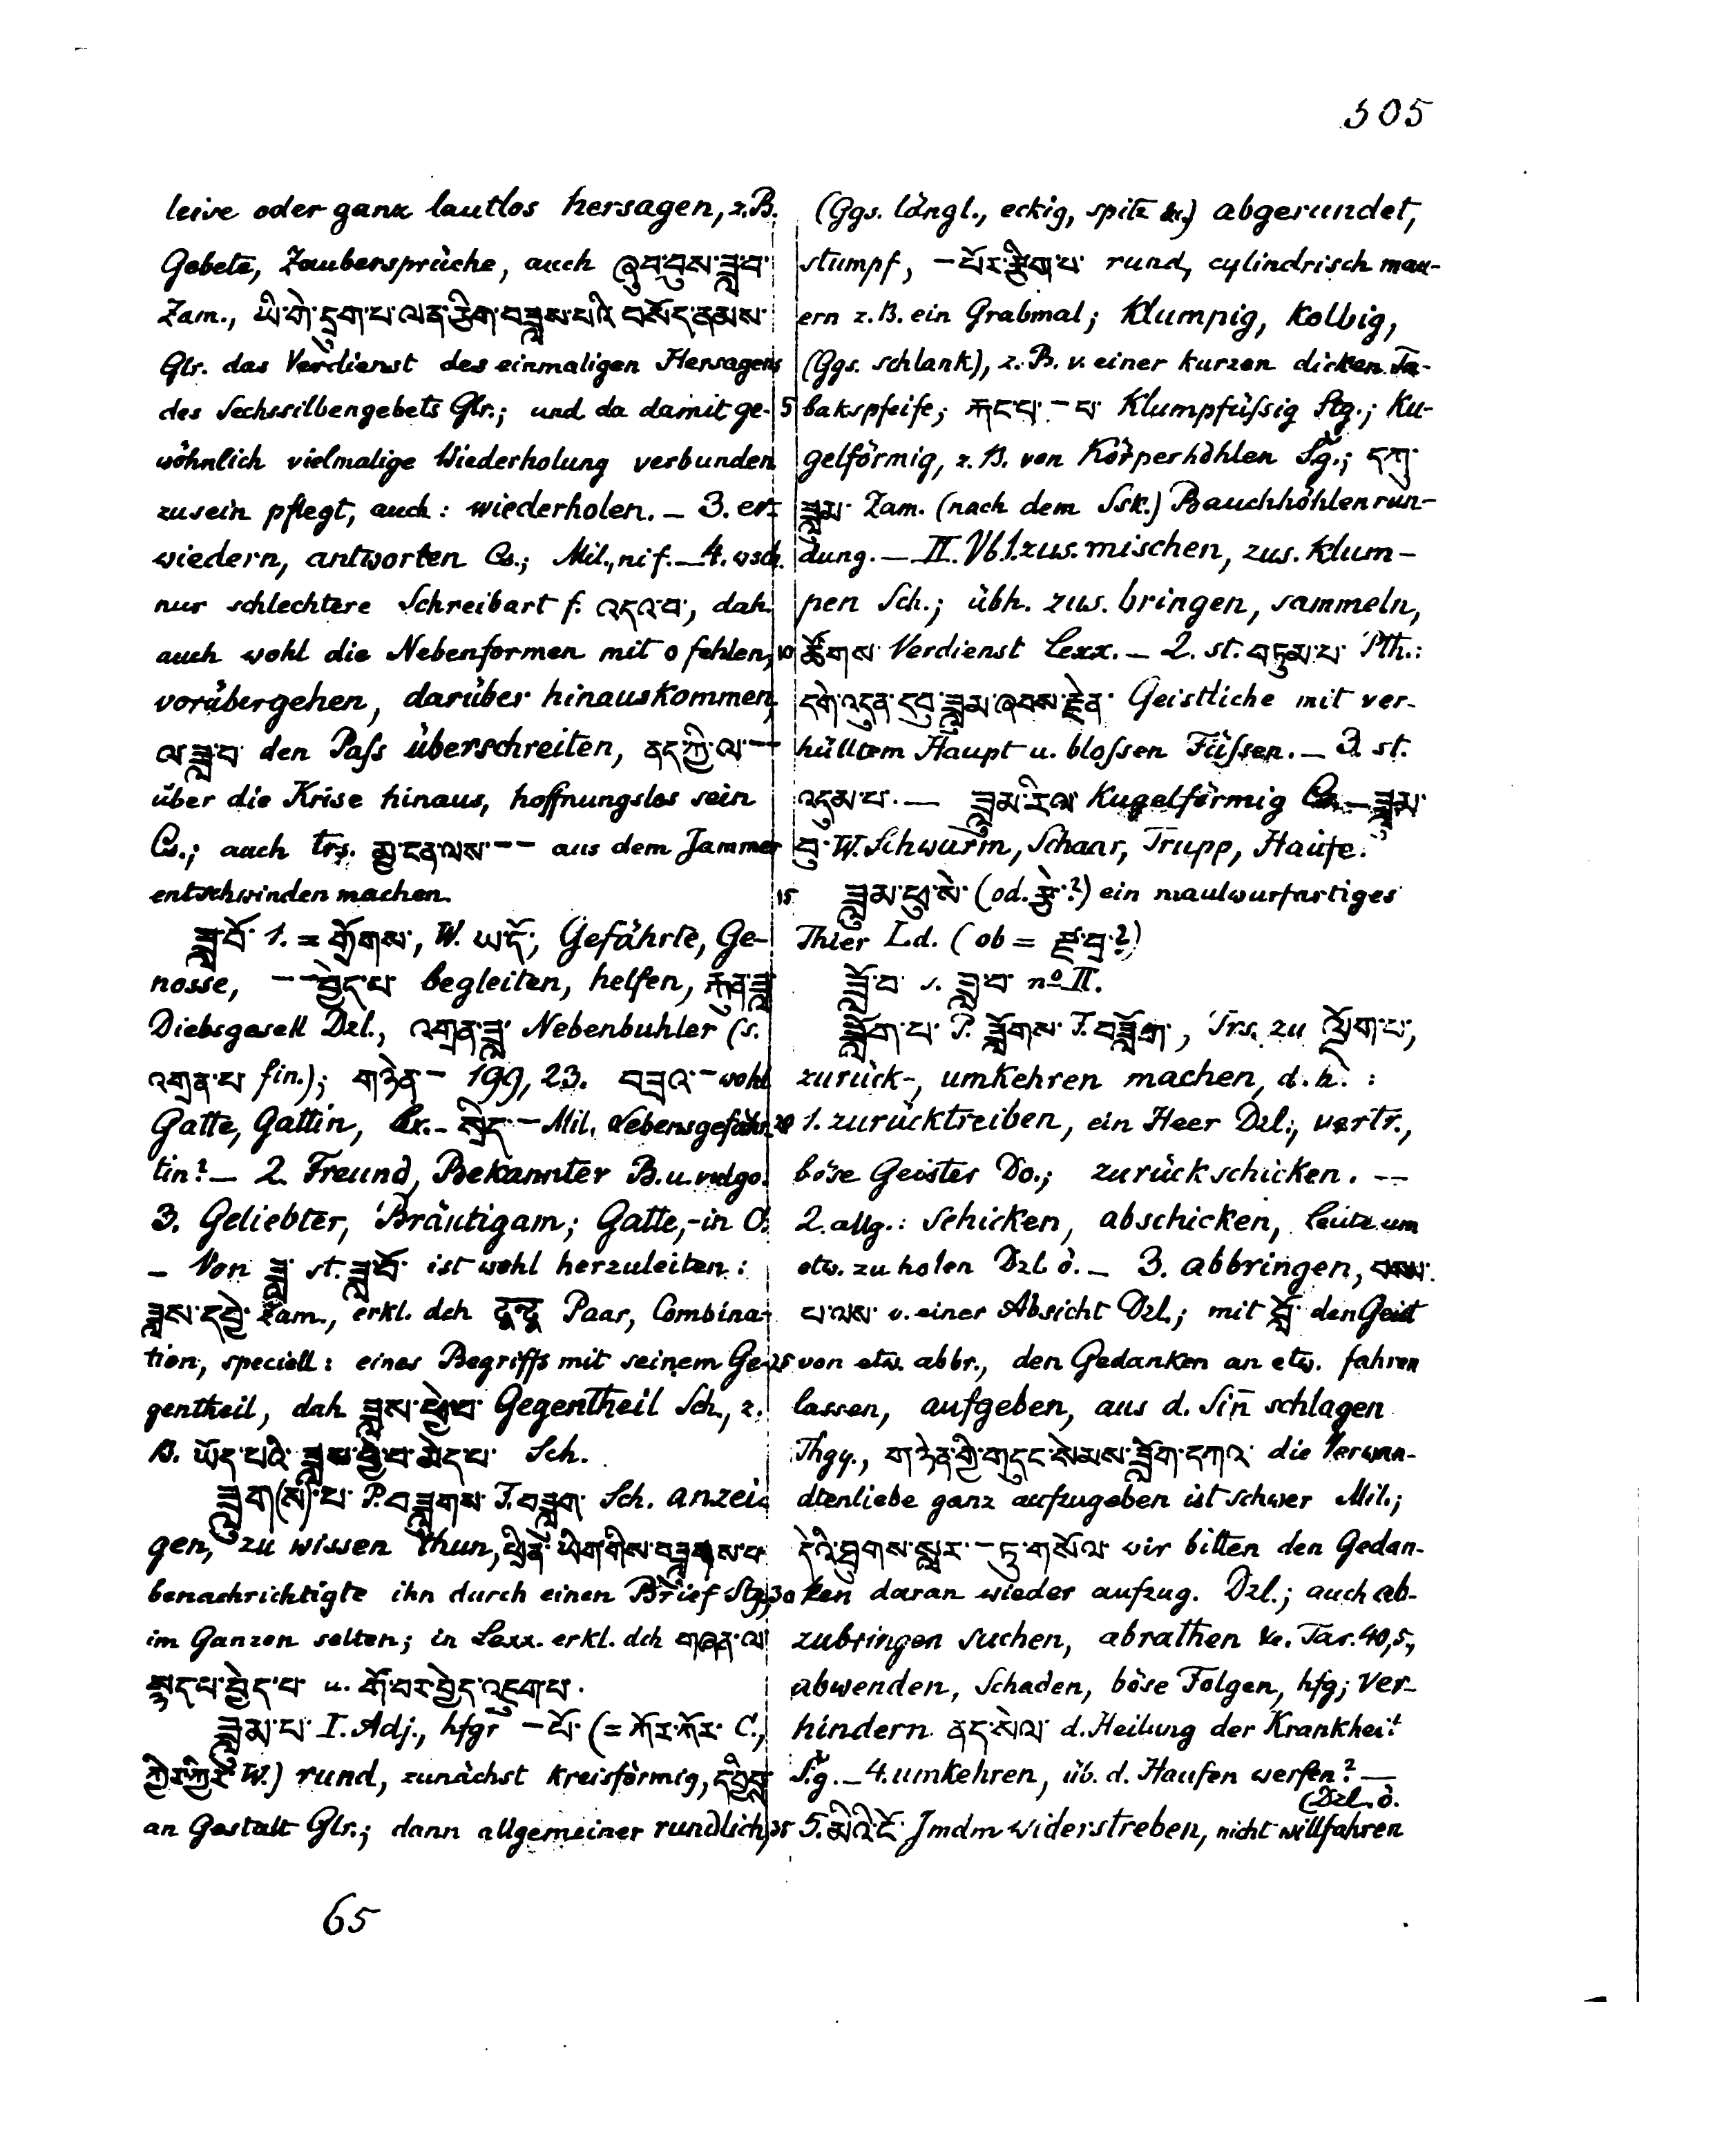 505
leise oder ganz lautlos hersagen, z.B.
Gebete, Zaubersprüche, auch ཞུབ་བུས་ཟླ་བ་
Zam., ཡི་གེ་དྲུག་པ་ལན་ཅིག་བཟླས་པའི་བསོད་ནམས་
Glr. das Verdienst des einmaligen Hersagens
des Sechssilbengebets Glr.; und da damit ge-
wöhnlich vielmalige Wiederholung verbunden
zu sein pflegt, auch: wiederholen. – 3. er-
wiedern, antworten Cs.; Mil., nif. – 4. wsch.
nur schlechtere Schreibart f. འདའ་བ་, dah.
auch wohl die Nebenformen mit o fehlen,
vorübergehen, darüber hinauskommen,
ལ་ཟླ་བ་ den Paſs überschreiten, ནད་ཀྱི་ལ་ –
über die Krise hinaus, hoffnungslos sein
Cs.; auch trs. མྱ་ངན་ལས་ – – aus dem Jammer
entschwinden machen.
ཟླ་བོ་ 1. = གྲོགས་, W. ཡ་དོ་, Gefährte, Ge-
nosse, – – བྱེད་པ་ begleiten, helfen, རྐུན་ཟླ་
Diebsgesell Dzl., འགྲན་ཟླ་ Nebenbuhler (s.
འགྲན་པ་ fin.); གཉེན་ – 199, 23. བཟའ་ – wohl
Gatte, Gattin, Lx. – སྲིད་ – Mil. Lebensgefähr-
tin? – 2. Freund, Bekannter B. u. vulgo.
3. Geliebter, Bräutigam; Gatte, – in C.
– Von ཟླ་ st. ཟླ་བོ་ ist wohl herzuleiten:
ཟླས་དབྱེ་ Zam., erkl. dch द्वन्द्व Paar, Combina-
tion, speciell: eines Begriffs mit seinem Ge-
gentheil, dah ཟླས་ཕྱེ་བ་ Gegentheil Sch., z.
B. ཡོད་པའི་ཟླས་ཕྱེ་བ་མེད་པ་ Sch.
ཟླུག་(ས)་པ་ P. བཟླུགས་ F. བཟླུག་ Sch. anzei-
gen, zu wissen thun, ཕྲིན་ཡིག་གིས་བཟླུགས་པ་
benachrichtigte ihn durch einen Brief Stg.,
im Ganzen selten; in Lexx. erkl. dch གཞན་ལ་
སྣད་པ་བྱེད་པ་ u. གོ་བར་བྱེད་འཇུག་པ་.
ཟླུམ་པ་ I. Adj., hfgr – པོ་ (= ཀོར་ཀོར་ C.,
ཀྱིར་ཀྱིར་ W.) rund, zunächst kreisförmig, དབྱིབས་
an Gestalt Glr.; dann allgemeiner rundlich,
65
(Ggs. längl., eckig, spitz &c.) abgerundet,
stumpf, – པོར་རྩིག་པ་ rund, cylindrisch mau-
ern z.B. ein Grabmal; Klumpig, Kolbig,
(Ggs. schlank), z.B. v. einer kurzen dicken Ta-
5 bakspfeife; རྐང་པ་ – པ་ Klumpfüſsig Stg.; Ku-
gelförmig, z.B. von Körperhöhlen S.g.; དཀུ་
ཟླུམ་ Zam. (nach dem Ssk.) Bauchhöhlenrun-
dung. – II. Vb. 1. zus. mischen, zus. Klum-
pen Sch.; übh. zus. bringen, sammeln,
10 ཚོགས་ Verdienst Lexx. – 2. st. བཏུམ་པ་ Pth.:
དགེ་འདུན་དབུ་ཟླུམ་ཞབས་རྗེན་ Geistliche mit ver-
hülltem Haupt u. bloſsen Füſsen. – 3. st.
འདུམ་པ་. – ཟླུམ་རིལ་ Kugelförmig Cs. – ཟླུམ་
བུ་ W. Schwarm, Schaar, Trupp, Haufe.
15 ཟླུམ་ཕུ་སེ་ (od. རྩེ་?) ein maulwurfartiges
Thier Ld. (ob = ཟྲ་བྲ་?)
ཟློ་བ་ s. ཟླ་བ་ no. II.
ཟློག་པ་ P. ཟློགས་ F. བཟློག་, Trs. zu ལྡོག་པ་,
zurück-, umkehren machen, d.h.:
20 1. zurücktreiben, ein Heer Dzl.; vertr.,
böse Geister Do.; zurückschicken. – –
2. allg.: schicken, abschicken, Leute um
etw. zu holen Dzl. ö. – 3. abbringen, བསམ་
པ་ལས་ v. einer Absicht Dzl.; mit བློ་ den Geist
25 von etw. abbr., den Gedanken an etw. fahren
lassen, aufgeben, aus d. Sin̄ schlagen
Thgy., གཉེན་གྱི་གདུང་སེམས་ཟློག་དཀའ་ die Verwan-
dtenliebe ganz aufzugeben ist schwer Mil.;
དེའི་ཐུགས་སླར་ – ཏུ་གསོལ་ wir bitten den Gedan-
30 ken daran wieder aufzug. Dzl.; auch ab-
zubringen suchen, abrathen &c. Tar. 40, 5.,
abwenden, Schaden, böse Folgen, hfg; ver-
hindern ནད་སེལ་ d. Heilung der Krankheit
S.g. – 4. umkehren, üb. d. Haufen werfen? –
(Dzl. ö.
35 5. མིའི་ངོ་ Jmdm widerstreben, nicht willfahren